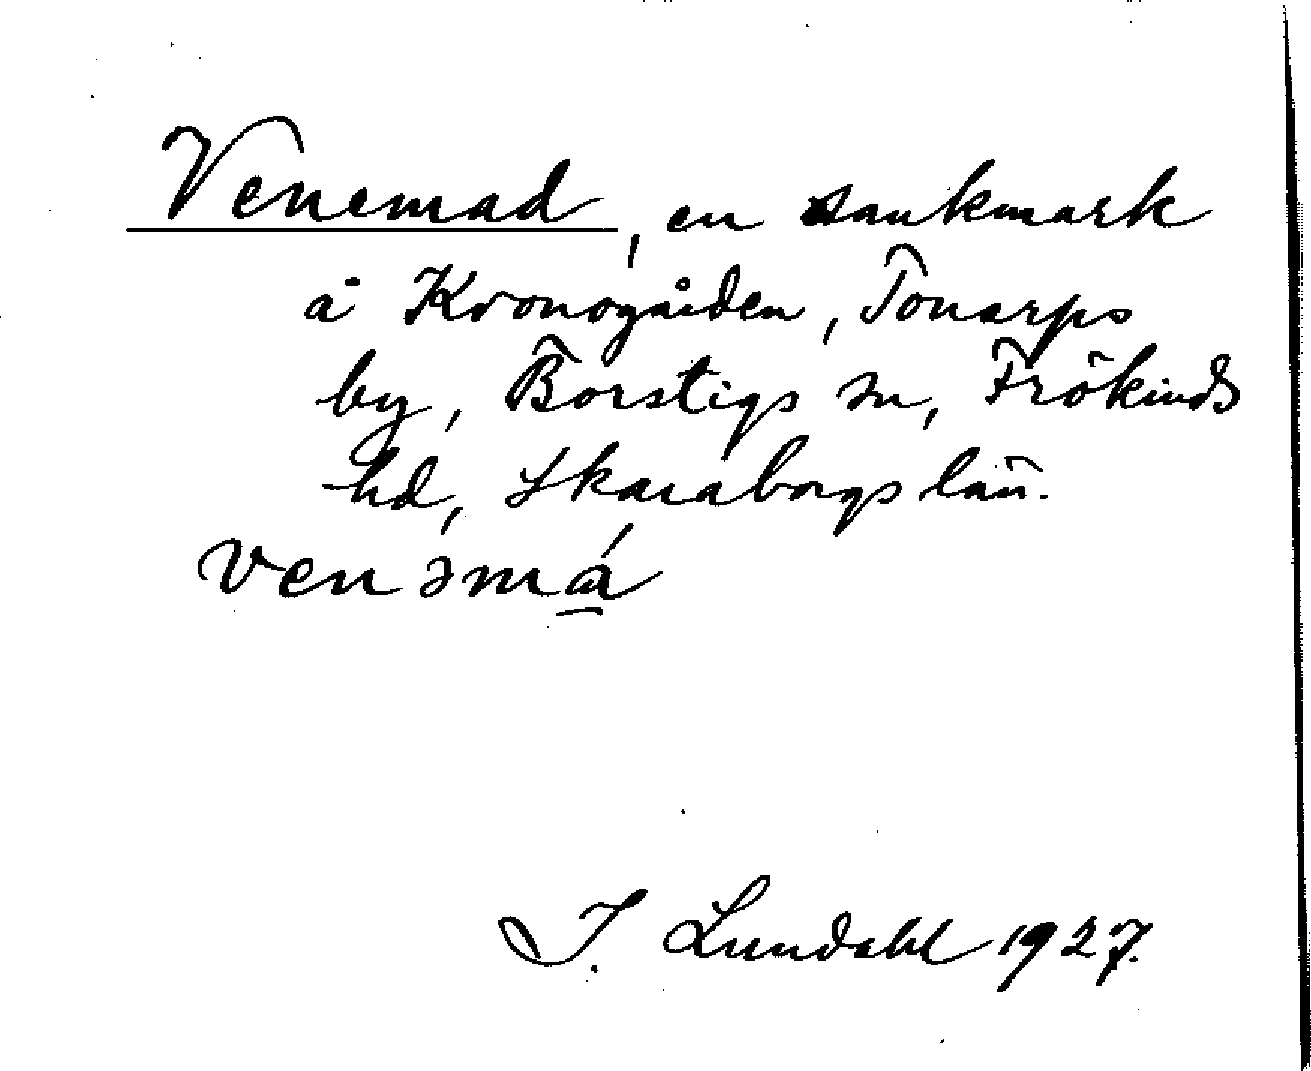 Venemad, en sankmark
å Kronogården, Tonarps
by, Börstigs sn, Frökinds
hd, Skaraborgs län.
venəmá
I. Lundahl 1927.